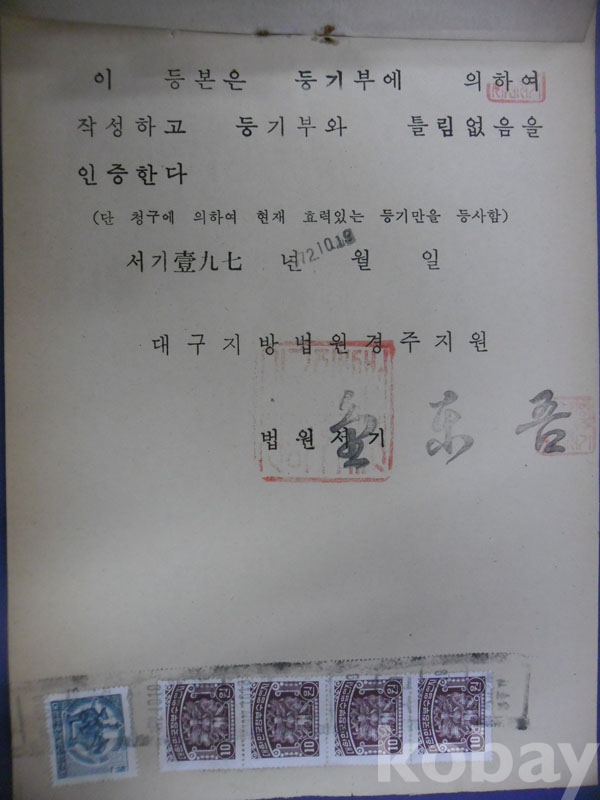 이 등본은 등기부에 의하여
작성하고 등기부와 틀림없음을
인증한다
(단 청구에 의하여 현재 효력있는 등기만을 등사함)
서기壹九七 년 월 일
대구지방법원경주지원
법원서기 金東吾
10 원 10 원 10 원 10 원
kobay